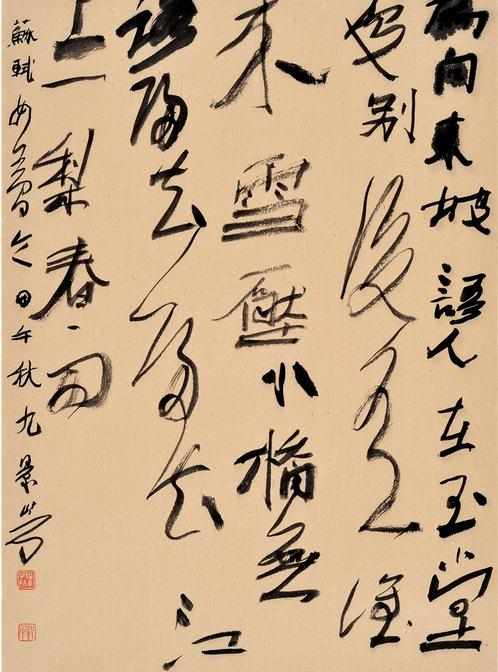 為向東坡語人在玉堂
處別後有誰
來雪壓小橋無
路歸去歸去江
上一梨春雨
蘇軾如夢令甲午秋九景